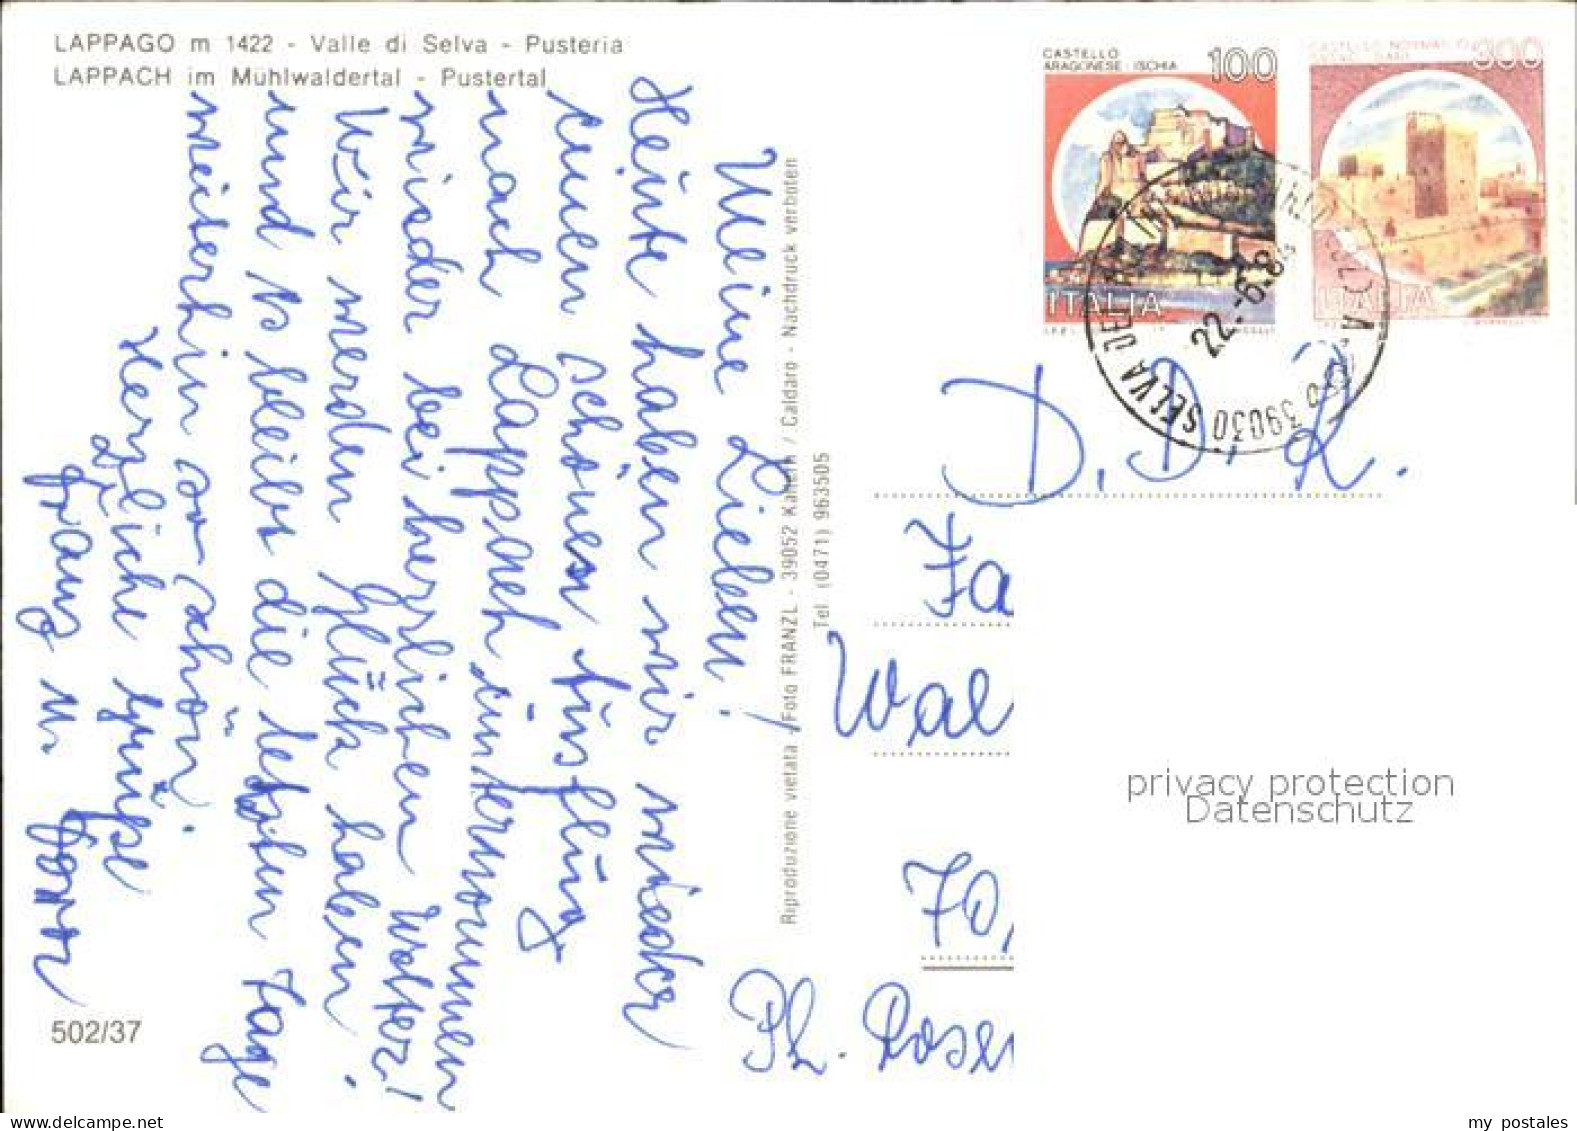 LAPPAGO m 1422 - Valle di Selva - Pusteria
LAPPACH im Mühlwaldertal - Pustertal
Meine Lieben!
Heute haben wir wieder
einen schönen Ausflug
nach Lappach unternommen
wieder bei herzlichem Wetter!
Wir werden Glück haben.
und es bleibt die letzten Tage
weiterhin so schön.
Herzliche Grüße
Franz u.
502/37
Riproduzione vietata / Foto FRANZL - 39052 Kaltern / Caldaro - Nachdruck verboten
Tel (0471) 963505
CASTELLO
ARAGONESE - ISCHIA
100
ITALIA
300
ITALIA
39030 SELVA DEI
22.-6.8
D.D.R.
Fa
Wal
70,
Ph. Rosen
privacy protection
Datenschutz
my postales